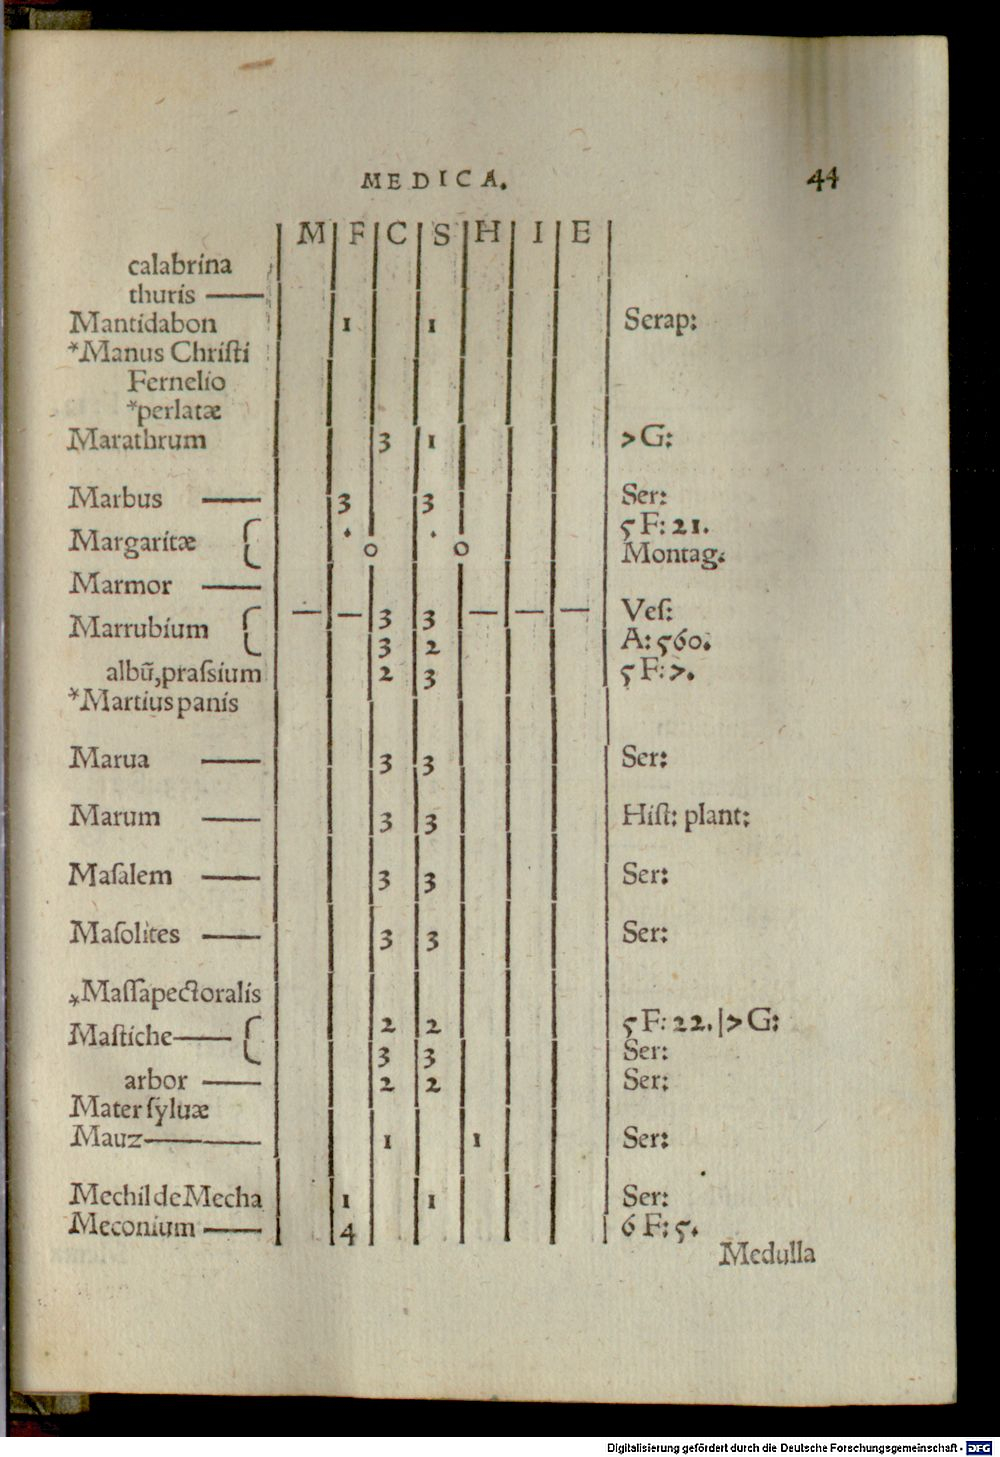 MEDICA. 44
M F C S H I E
calabrina
thuris —
Mantidabon 1 1 Serap:
*Manus Chriſti
Fernelio
*perlatæ
Marathrum 3 1 >G:
Marbus — 3 3 Ser:
5 F: 21.
Margaritæ { 0 0
Montag:
Marmor —
— — 3 3 — — — Veſ:
Marrubium {
3 2 A: 560.
albū,praſsium 2 3 5 F: >.
*Martius panis
Marua — 3 3 Ser:
Marum — 3 3 Hiſt: plant:
Maſalem — 3 3 Ser:
Maſolites — 3 3 Ser:
*Maſſapectoralis
2 2 5 F: 22. | >G:
Maſtiche— {
3 3 Ser:
arbor — 2 2 Ser:
Mater ſyluæ
Mauz— 1 1 Ser:
Mechil de Mecha 1 1 Ser:
Meconium — 4 6 F: 5.
Medulla
Digitalisierung gefördert durch die Deutsche Forschungsgemeinschaft - DFG